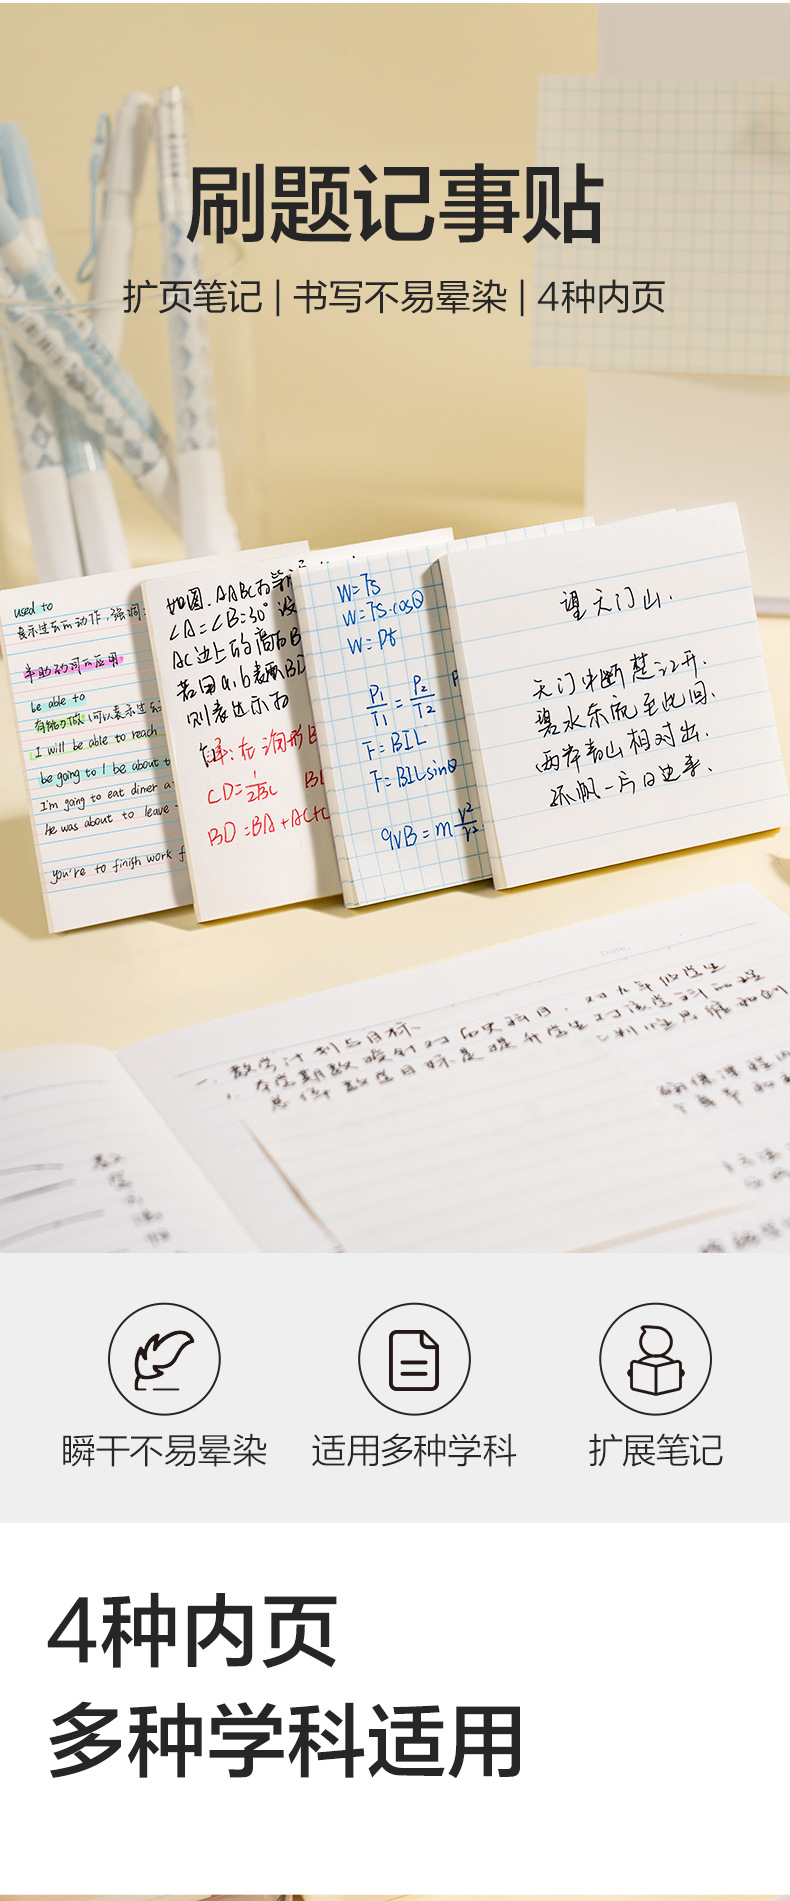 刷题记事贴
扩页笔记 | 书写不易晕染 | 4种内页
used to
表示过去的动作,强调:
半助动词的应用
be able to
I will be able to reach
be going to / be about t
I'm going to eat diner a
He was about to leave
you're to finish work f
如图.△ABC为等
∠A=∠B=30° 没
AC边上的高为B
若用a.b表示BD
则表达示为
CD=½BC
BD=BA+AC+C
W=Fs
W=Fs·cosθ
W=Pt
P₁/T₁=P₂/T₂
F=BIL
F=BILsinθ
qvB=m v²/r
望天门山.
天门中断楚江开.
碧水东流至此回.
两岸青山相对出.
孤帆一片日边来.
Date.
一.教学计划与目标.
瞬干不易晕染
适用多种学科
扩展笔记
4种内页
多种学科适用